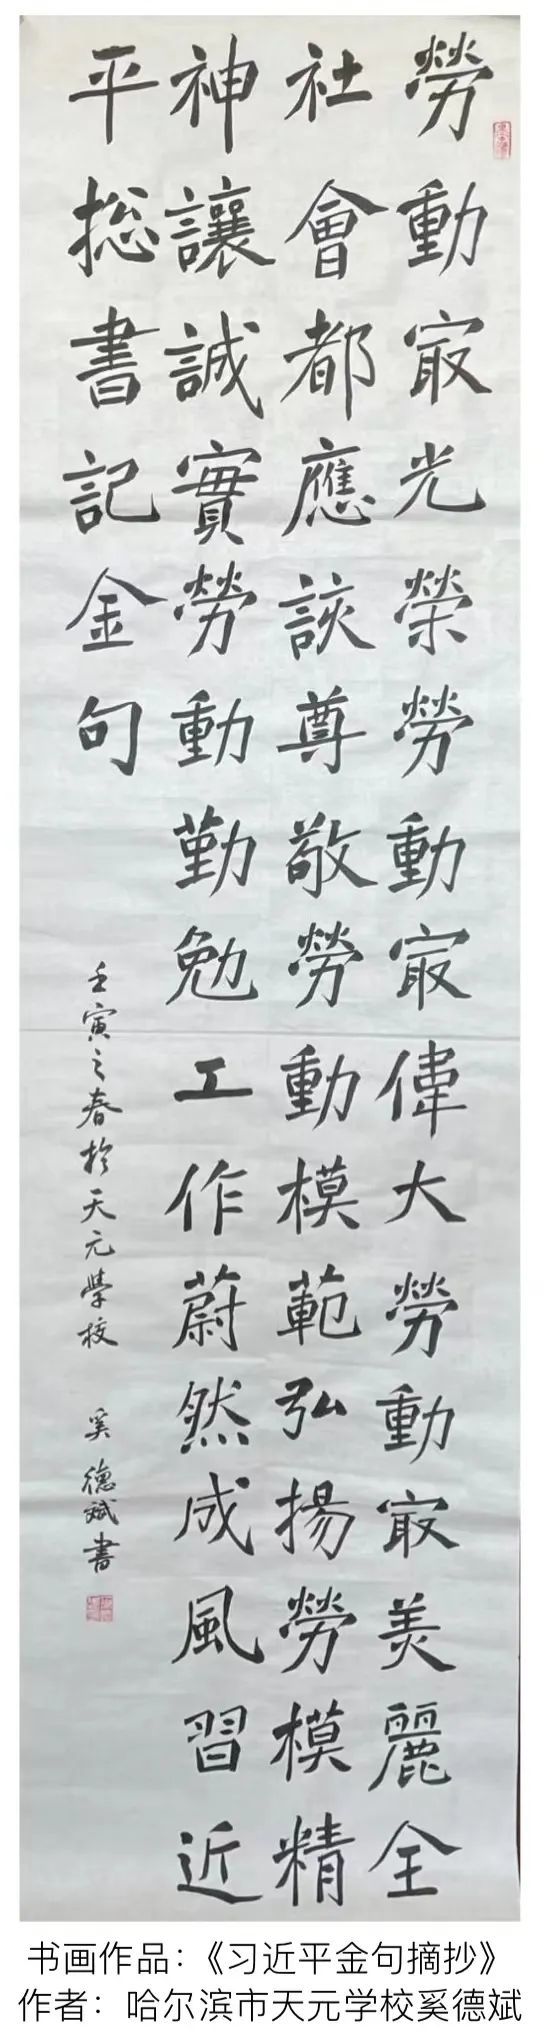 勞動㝡光榮勞動㝡偉大勞動㝡美麗全
社會都應該尊敬勞動模範弘揚勞模精
神讓誠實勞動勤勉工作蔚然成風習近
平総書記金句
壬寅之春於天元學校 奚德斌書
书画作品：《习近平金句摘抄》
作者：哈尔滨市天元学校奚德斌